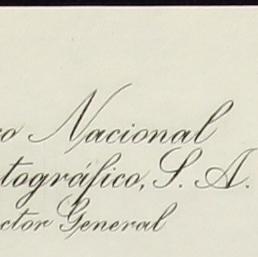 co Nacional
tográfico, S. A.
ctor General